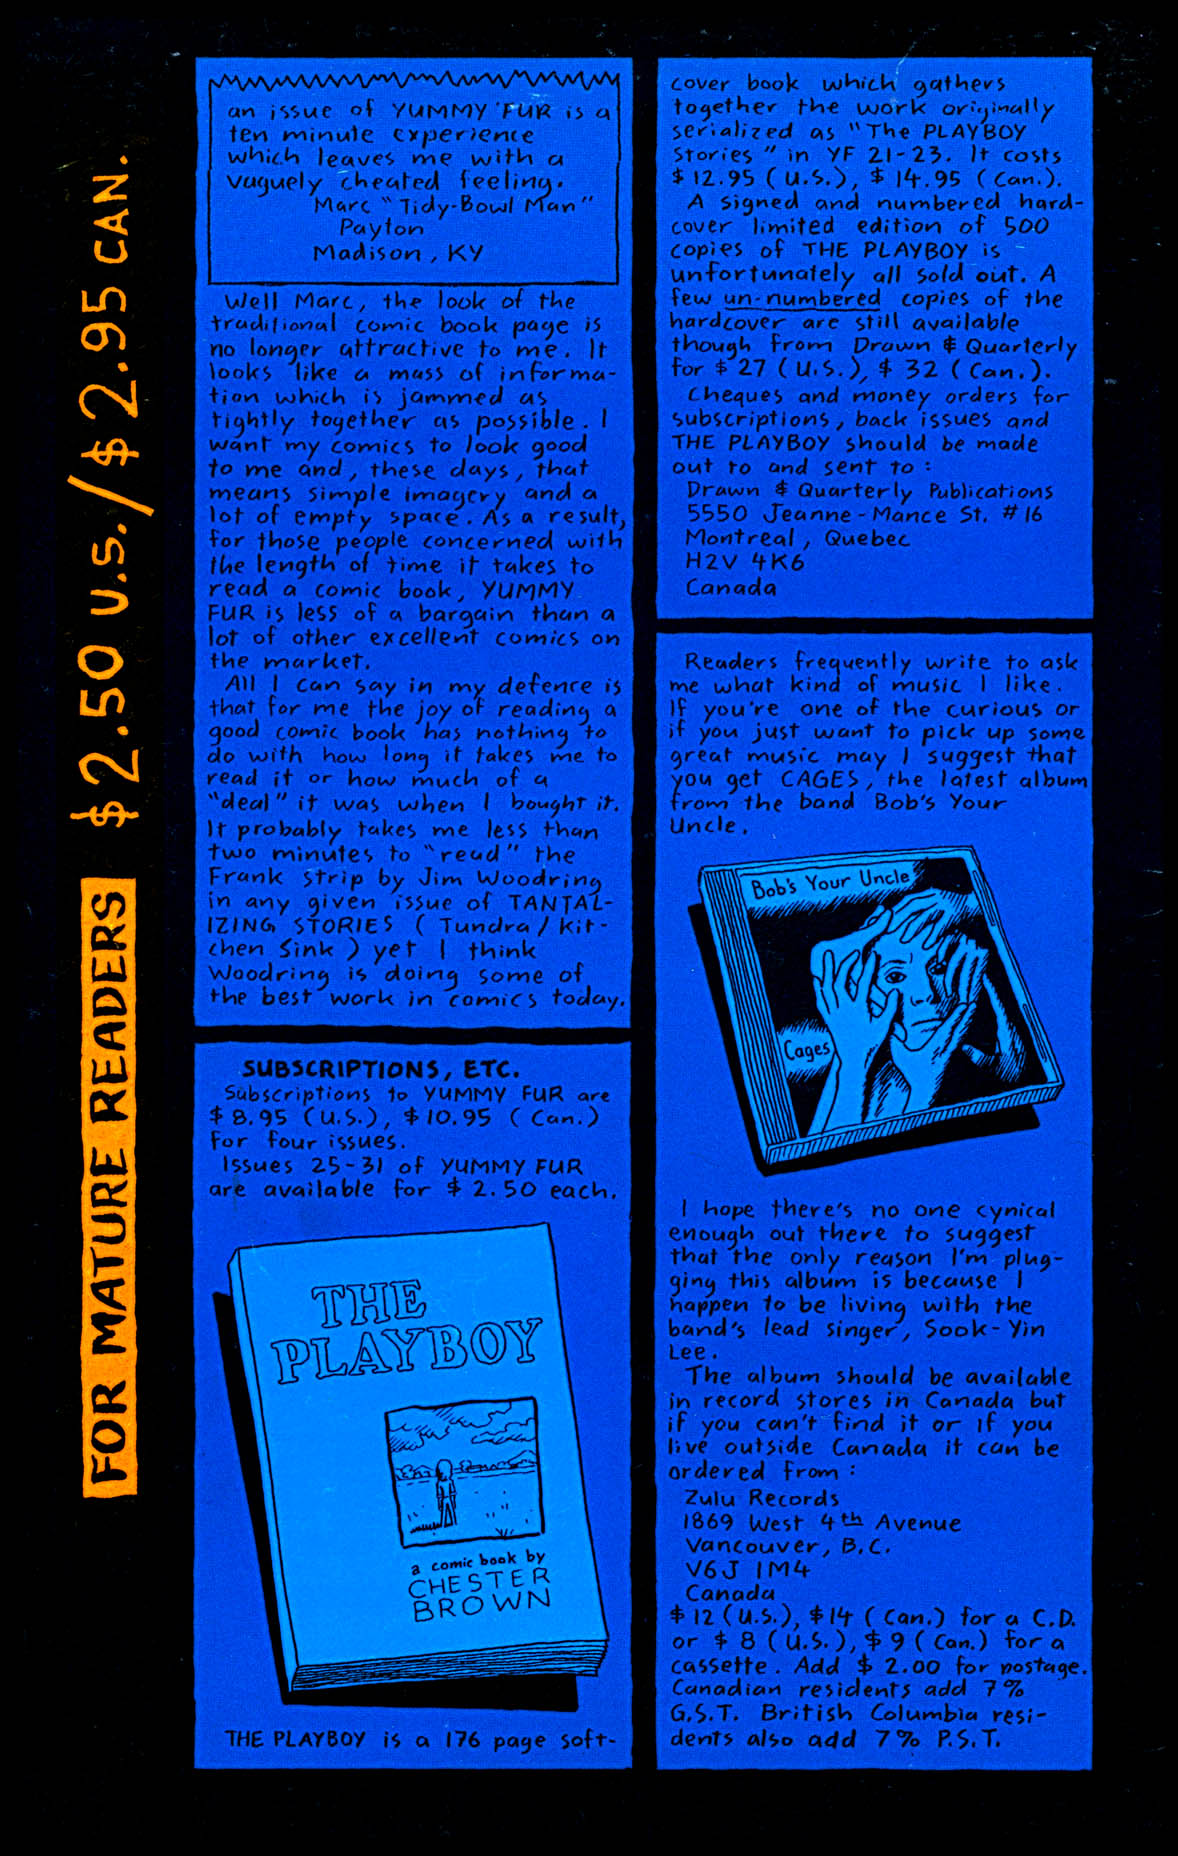 $2.50 U.S./$2.95 CAN.
FOR MATURE READERS
an issue of YUMMY FUR is a
ten minute experience
which leaves me with a
vaguely cheated feeling.
Marc "Tidy-Bowl Man"
Payton
Madison, KY
Well Marc, the look of the
traditional comic book page is
no longer attractive to me. It
looks like a mass of informa-
tion which is jammed as
tightly together as possible. I
want my comics to look good
to me and, these days, that
means simple imagery and a
lot of empty space. As a result,
for those people concerned with
the length of time it takes to
read a comic book, YUMMY
FUR is less of a bargain than a
lot of other excellent comics on
the market.
All I can say in my defence is
that for me the joy of reading a
good comic book has nothing to
do with how long it takes me to
read it or how much of a
"deal" it was when I bought it.
It probably takes me less than
two minutes to "read" the
Frank strip by Jim Woodring
in any given issue of TANTAL-
IZING STORIES (Tundra/Kit-
chen Sink) yet I think
Woodring is doing some of
the best work in comics today.
SUBSCRIPTIONS, ETC.
Subscriptions to YUMMY FUR are
$8.95 (U.S.), $10.95 (Can.)
for four issues.
Issues 25-31 of YUMMY FUR
are available for $2.50 each.
THE
PLAYBOY
a comic book by
CHESTER
BROWN
THE PLAYBOY is a 176 page soft-
cover book which gathers
together the work originally
serialized as "The PLAYBOY
Stories" in YF 21-23. It costs
$12.95 (U.S.), $14.95 (Can.).
A signed and numbered hard-
cover limited edition of 500
copies of THE PLAYBOY is
unfortunately all sold out. A
few un-numbered copies of the
hardcover are still available
though from Drawn & Quarterly
for $27 (U.S.), $32 (Can.).
Cheques and money orders for
subscriptions, back issues and
THE PLAYBOY should be made
out to and sent to:
Drawn & Quarterly Publications
5550 Jeanne-Mance St. #16
Montreal, Quebec
H2V 4K6
Canada
Readers frequently write to ask
me what kind of music I like.
If you're one of the curious or
if you just want to pick up some
great music may I suggest that
you get CAGES, the latest album
from the band Bob's Your
Uncle.
Bob's Your Uncle
Cages
I hope there's no one cynical
enough out there to suggest
that the only reason I'm plug-
ging this album is because I
happen to be living with the
band's lead singer, Sook-Yin
Lee.
The album should be available
in record stores in Canada but
if you can't find it or if you
live outside Canada it can be
ordered from:
Zulu Records
1869 West 4th Avenue
Vancouver, B.C.
V6J 1M4
Canada
$12 (U.S.), $14 (Can.) for a C.D.
or $8 (U.S.), $9 (Can.) for a
cassette. Add $2.00 for postage.
Canadian residents add 7%
G.S.T. British Columbia resi-
dents also add 7% P.S.T.